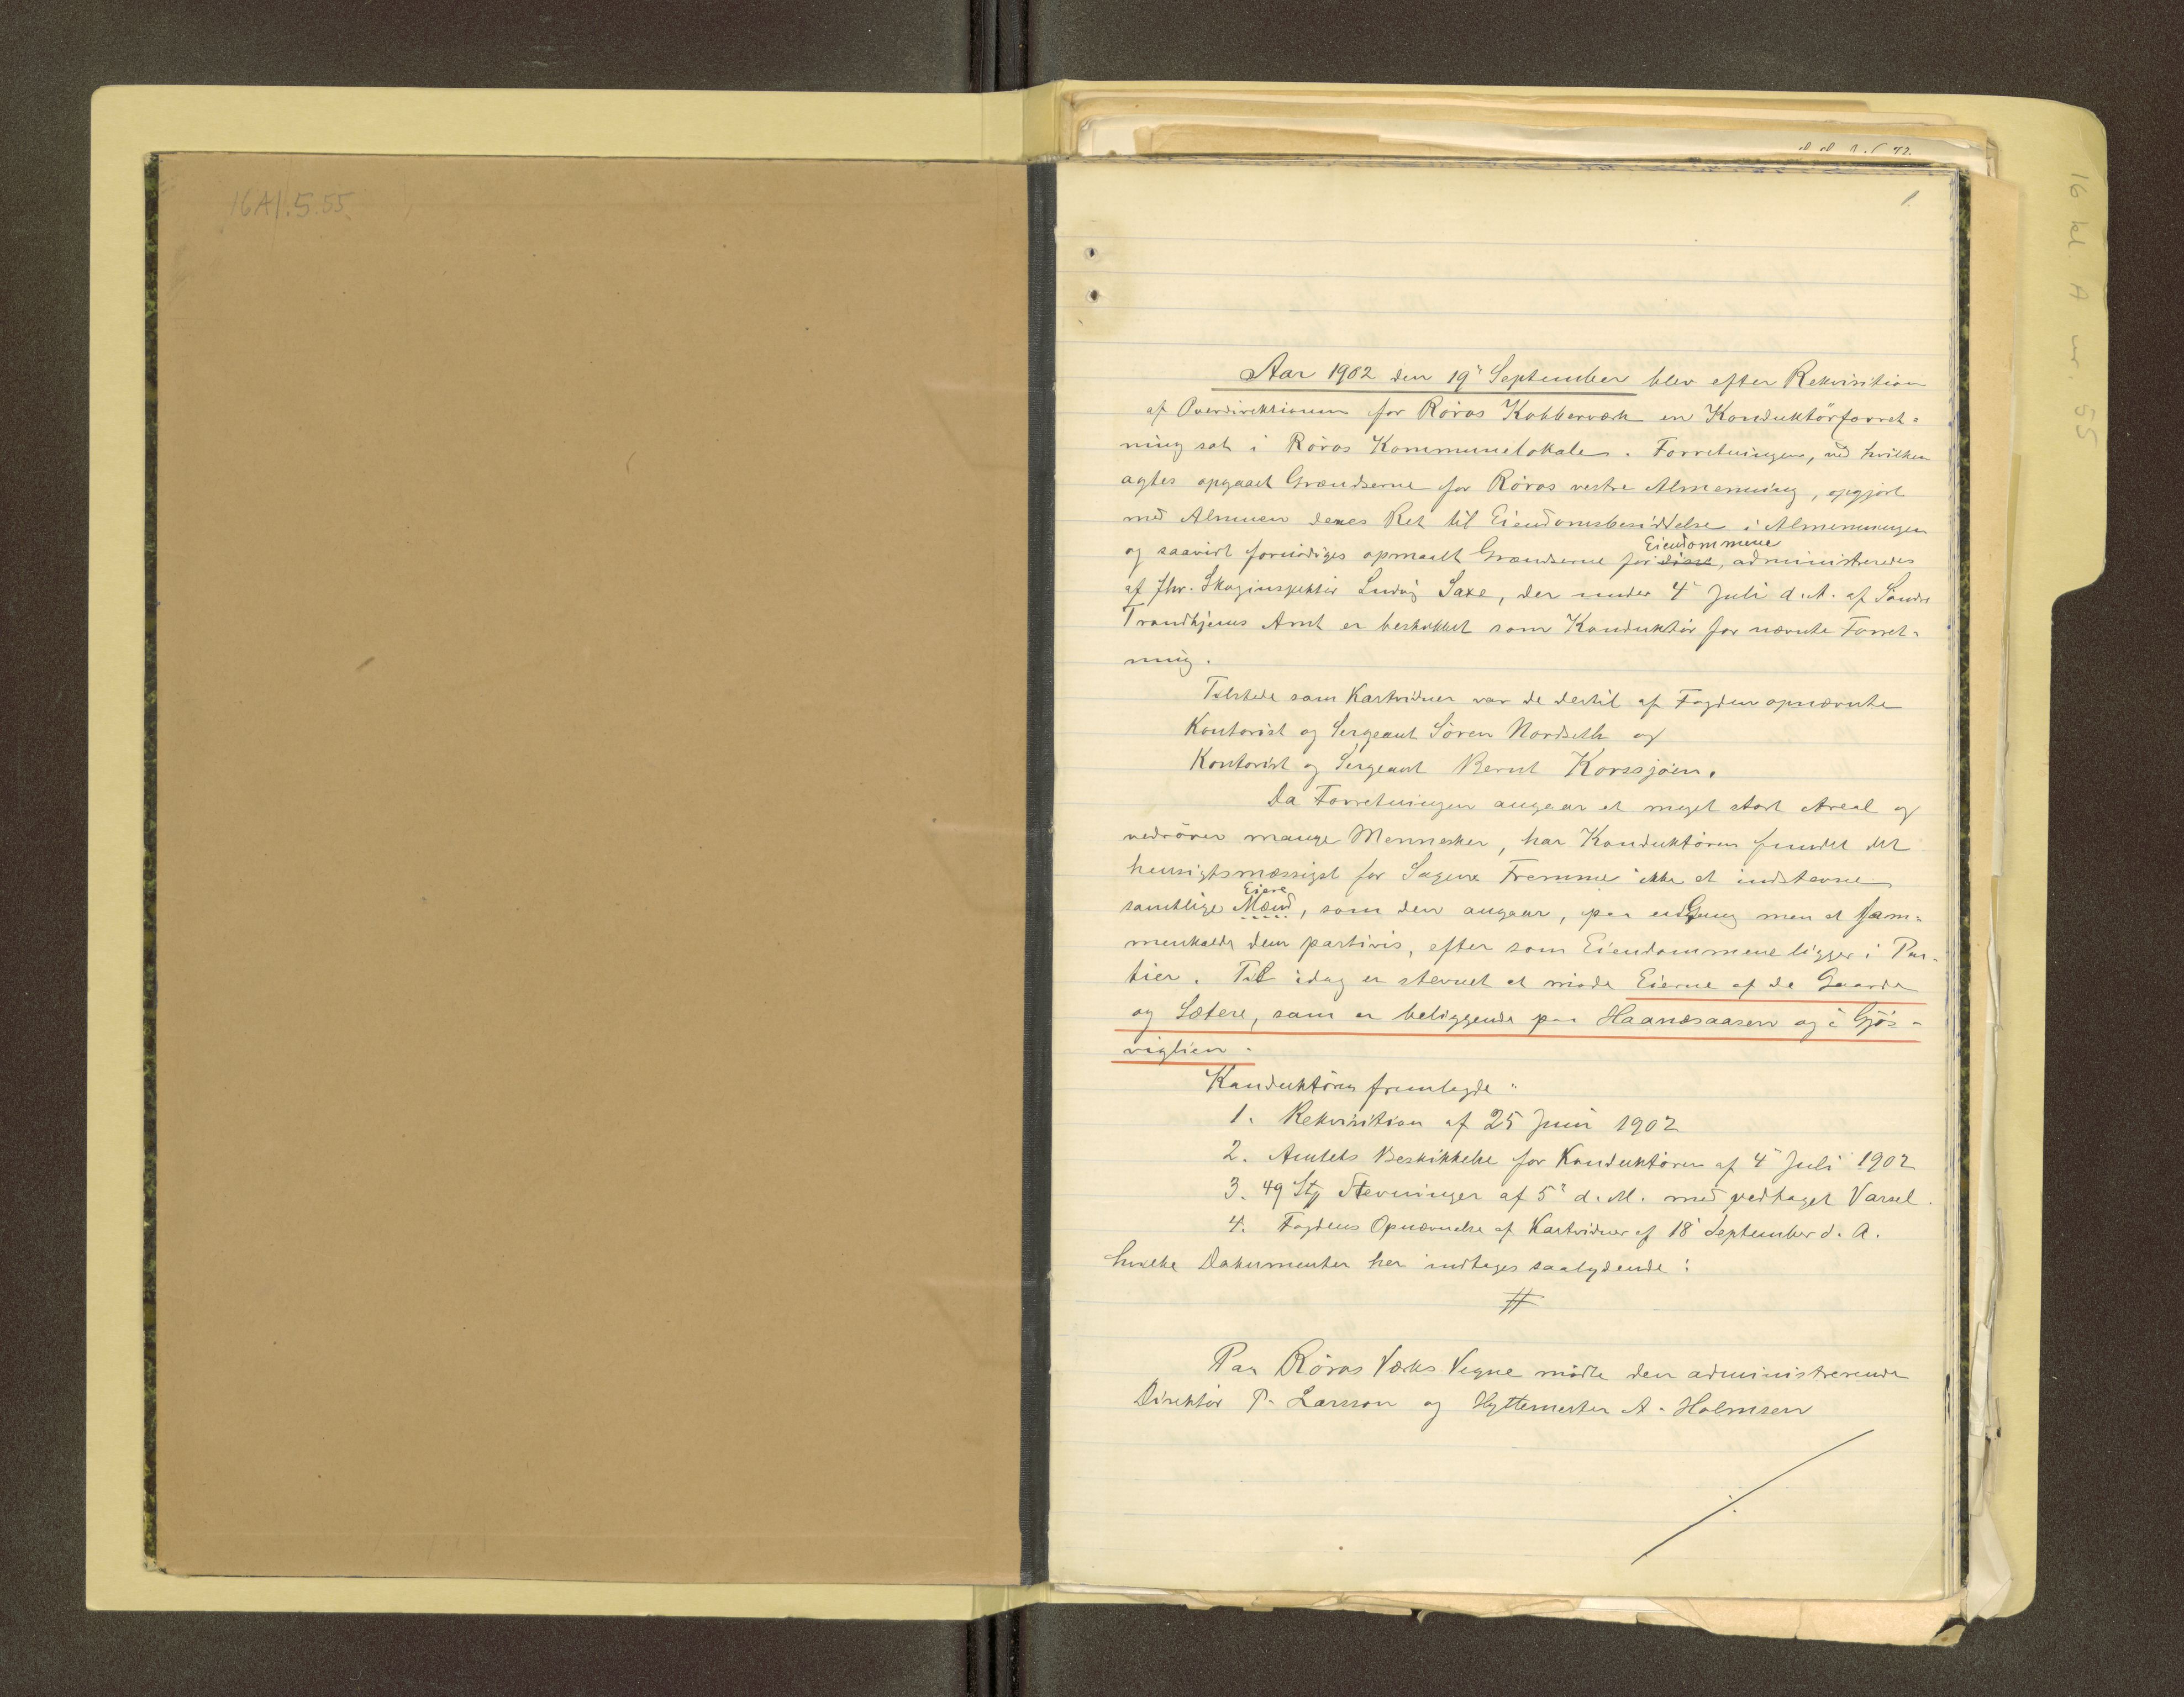 16A1.5.55.
16 kl A nr. 55
1
Aar 1902 den 19de September blev efter Rekvisition
af Overdirektionen for Röros Kobberværk en Konduktörforret-
ning sat i Röros Kommunelokale. Forretningen, ved hvilken
agtes opgaaet Grændserne for Röros vestre Almenning, opgjort
med Almuen denes Ret til Eiendomsbesiddelse i Almenningen
og saavidt fornödiges opmaalt Grændserne for disse, administreredes
Eiendommene
af fhv. Skoginspektör Ludvig Saxe, der under 4de Juli d. A. af Söndre
Trondhjems Amt er beskikket som Konduktör for nævnte Forret-
ning.
Tilstede som Kartvidner var de dertil af Fogden opnævnte
Kontorist og Sergeant Sören Nordseth og
Kontorist og Sergeant Bernt Korssjöen.
Da Forretningen angaar et meget stort Areal og
vedrörer mange Mennesker, har Konduktören fundet det
hensigtsmæssigst for Sagens Fremme ikke at indstevne
Eiere
samtlige Mænd, som den angaar, paa en Gang men at sam-
menkalde dem partivis, efter som Eiendommene ligger i Par-
tier. Til idag er stevnet at möde Eierne af de Gaarde
og Sætere, som er beliggende paa Haanæsaasen og i Gjös-
viglien.
Konduktören fremlagde:
1. Rekvisition af 25 Juni 1902
2. Amtets Beskikkelse for Konduktören af 4de Juli 1902
3. 49 Stk Stevninger af 5te d. M. med vedtaget Varsel.
4. Fogdens Opnævnelse af Kartvidner af 18de September d. A.
hvilke Dokumenter her indtages saalydende:
#
Paa Röros Værks Vegne mödte den administrerende
Direktör P. Larsson og Hyttemester A. Holmsen
./.